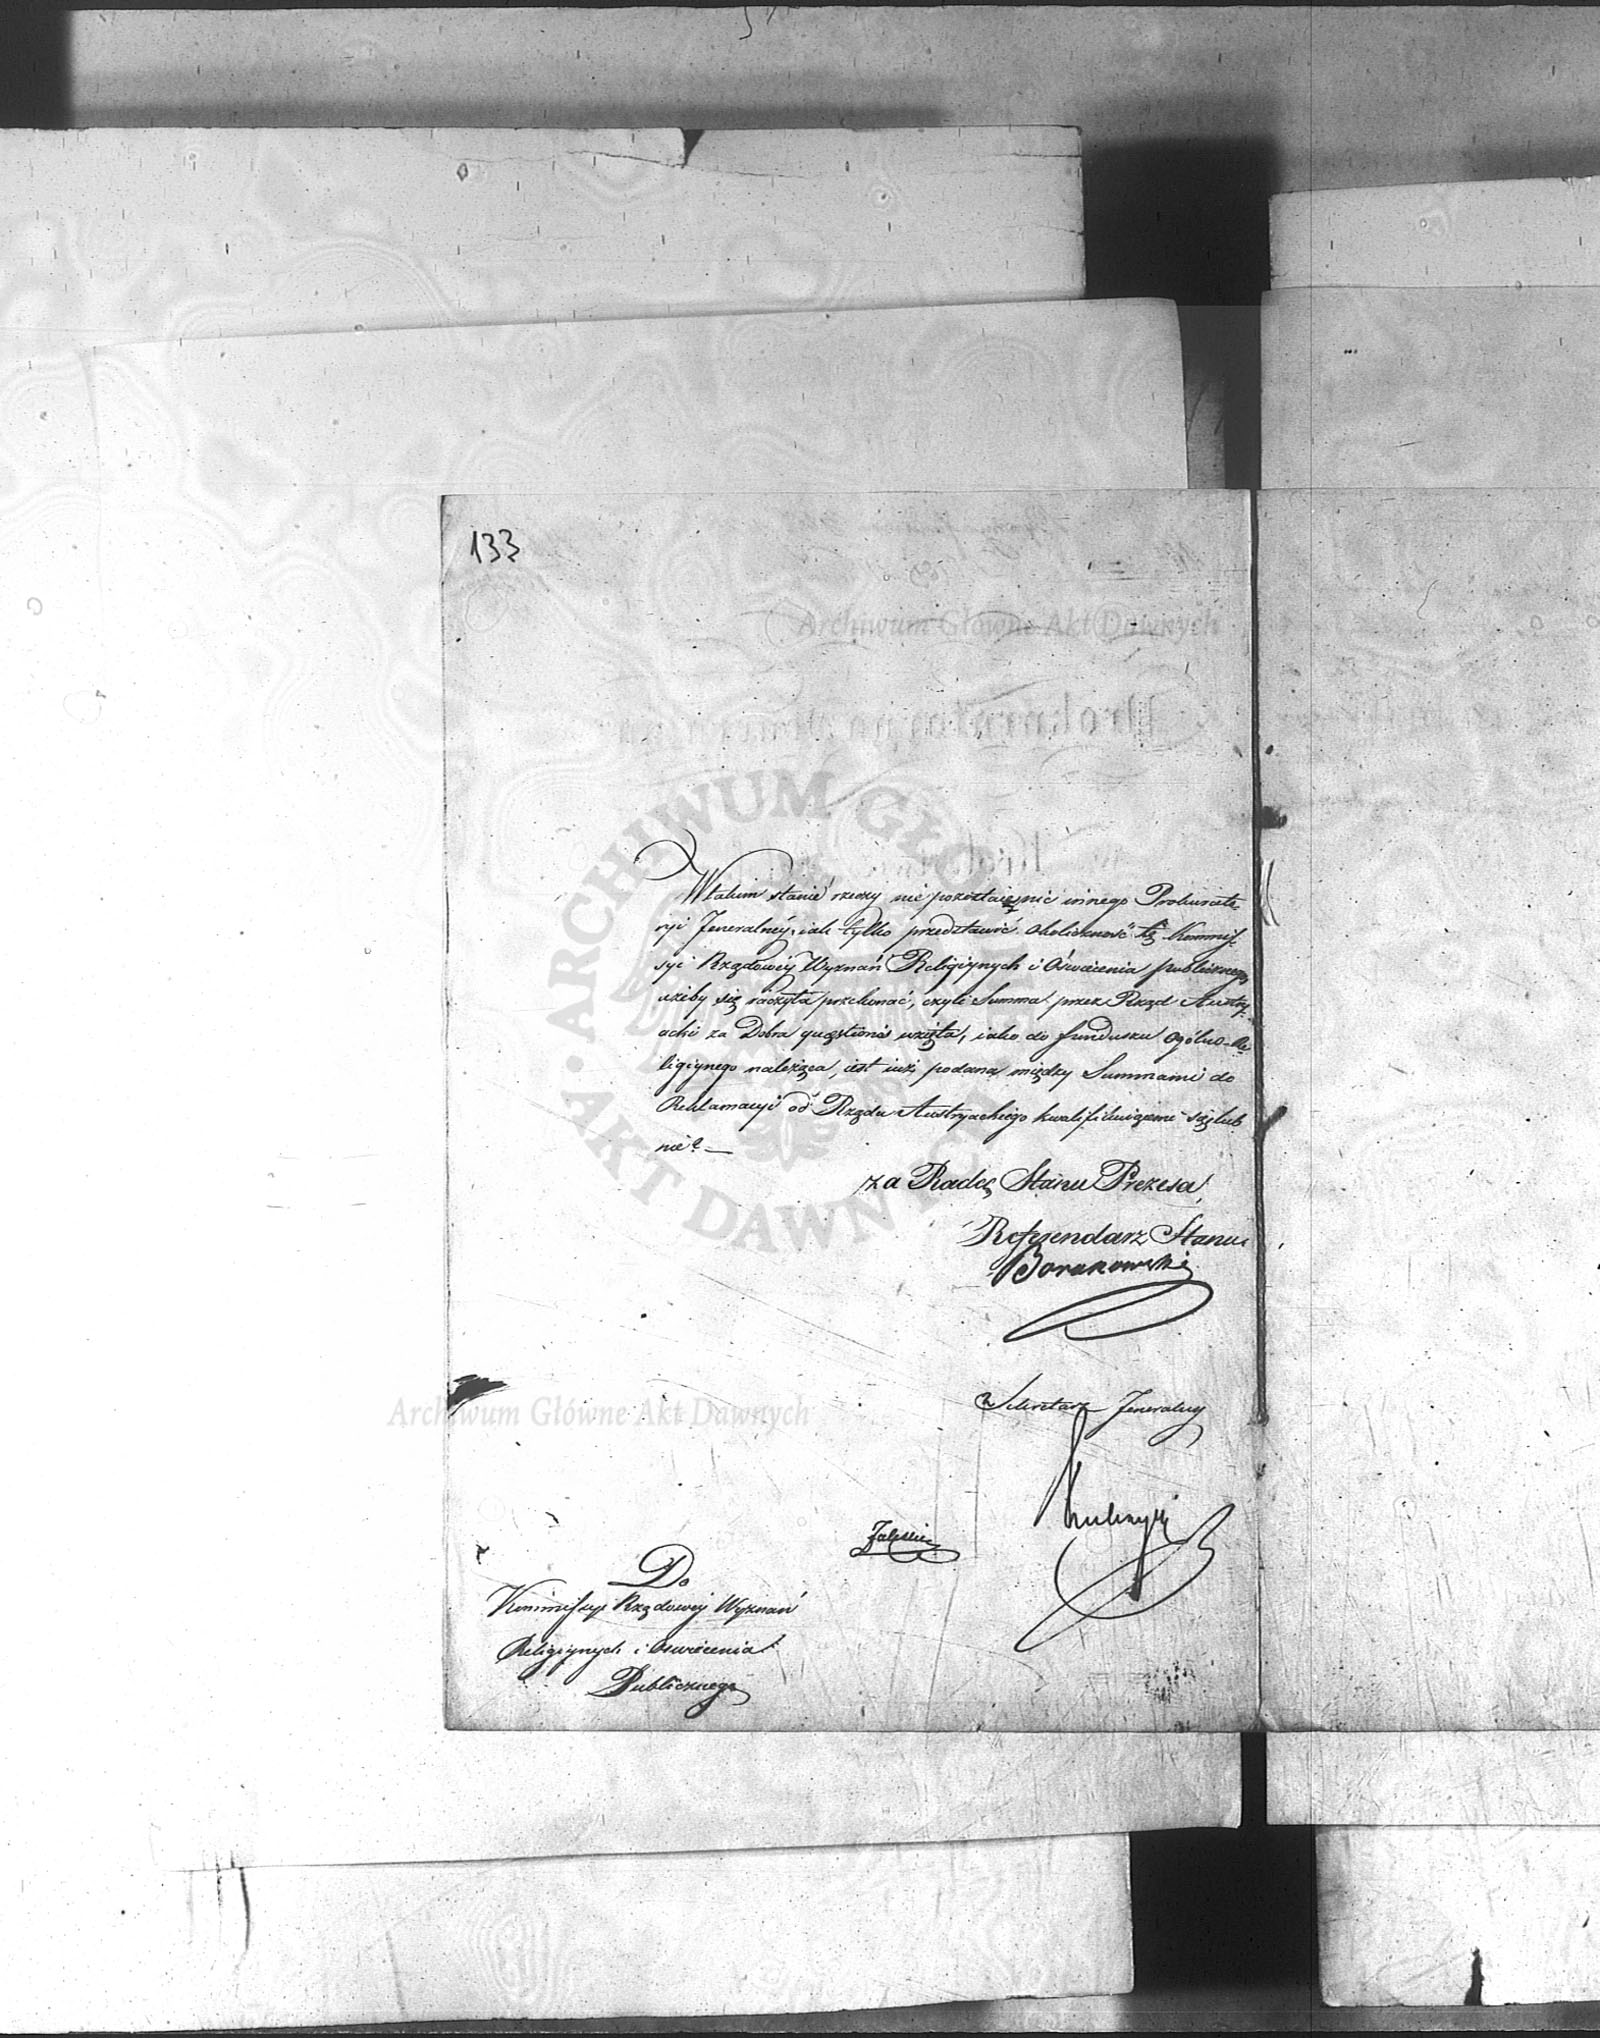 133
Archiwum Główne Akt Dawnych
ARCHIWUM GŁÓWNE AKT DAWNYCH
W takim stanie rzeczy nie pozostaie nic innego Prokurato-
ryi Jeneralnéy, iak tylko przedstawić okoliczność tę Kommis-
syi Rządowéy Wyznań Religiynych i Oświecenia publicznego
ażeby się raczyła przekonać, czyli Summa przez Rząd Austry-
acki za Dobra quęstionis wzięta, iako do funduszu ogólno-Re-
ligiynego należąca, iest iuż podana między Summami do
Reklamacyi od Rządu Austryackiego kwalifikuiącemi się lub
nie? —
za Radcę Stanu Prezesa
Referendarz Stanu
Sekretarz Jeneralny
Zaleski
Do
Kommissyi Rządowéy Wyznań
Religiynych i Oświecenia
Publicznego
Archiwum Główne Akt Dawnych